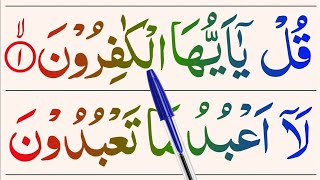 قُلْ يٰٓاَيُّهَا الْكٰفِرُوْنَ ۙ﴿۱﴾
لَاۤ اَعْبُدُ مَا تَعْبُدُوْنَ